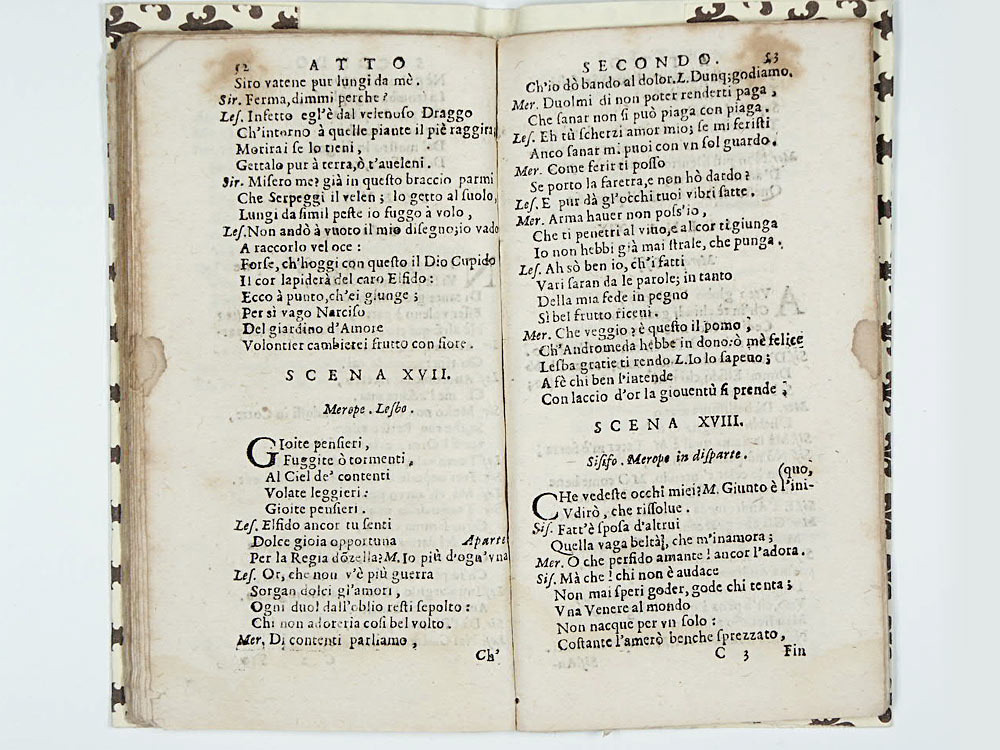 52 ATTO
Siro vatene pur lungi da mè.
Sir. Ferma, dimmi perche?
Les. Infetto egl'è dal velenoso Draggo
Ch'intorno à quelle piante il piè raggira;
Morirai se lo tieni,
Gettalo pur à terra, ò t'aueleni.
Sir. Misero me? già in questo braccio parmi
Che Serpeggi il velen; lo getto al suolo,
Lungi da simil peste io fuggo à volo,
Les. Non andò à vuoto il mio disegno; io vado
A raccorlo veloce:
Forse, ch'hoggi con questo il Dio Cupido
Il cor lapiderà del caro Elfido:
Ecco à punto, ch'ei giunge;
Per sì vago Narciso
Del giardino d'Amore
Volontier cambierei frutto con fiore.
SCENA XVII.
Merope. Lesbo.
GIoite pensieri,
Fuggite ò tormenti,
Al Ciel de' contenti
Volate leggieri:
Gioite pensieri.
Les. Elfido ancor tu senti
Dolce gioia opportuna Aparte
Per la Regia dōzella? M. Io più d'ogn'vna
Les. Or, che non v'è più guerra
Sorgan dolci gl'amori,
Ogni duol dall'oblio resti sepolto:
Chi non adoreria così bel volto.
Mer. Di contenti parliamo,
Ch'
SECONDO. 53
Ch'io dò bando al dolor. L. Dunq; godiamo.
Mer. Duolmi di non poter renderti paga,
Che sanar non si può piaga con piaga.
Les. Eh tù scherzi amor mio; se mi feristi
Anco sanar mi puoi con vn sol guardo.
Mer. Come ferir ti posso
Se porto la faretra, e non hò dardo?
Les. E pur dà gl'occhi tuoi vibri saette.
Mer. Arma hauer non poss'io,
Che ti penetri al viuo, e al cor ti giunga
Io non hebbi già mai strale, che punga.
Les. Ah sò ben io, ch'i fatti
Vari saran da le parole; in tanto
Della mia fede in pegno
Sì bel frutto riceui.
Mer. Che veggio? è questo il pomo,
Ch'Andromeda hebbe in dono: ò mè felice
Lesba gratie ti rendo L. Io lo sapeuo;
A fè chi ben l'intende
Con laccio d'or la giouentù si prende;
SCENA XVIII.
Sisifo. Merope in disparte.
(quo,
CHe vedeste occhi miei? M. Giunto è l'ini-
Vdirò, che rissolue.
Sis. Fatt'è sposa d'altrui
Quella vaga beltà, che m'innamora;
Mer. O che perfido amante! ancor l'adora.
Sis. Mà che! chi non è audace
Non mai speri goder, gode chi tenta;
Vna Venere al mondo
Non nacque per vn solo:
Costante l'amerò benche sprezzato,
C 3 Fin